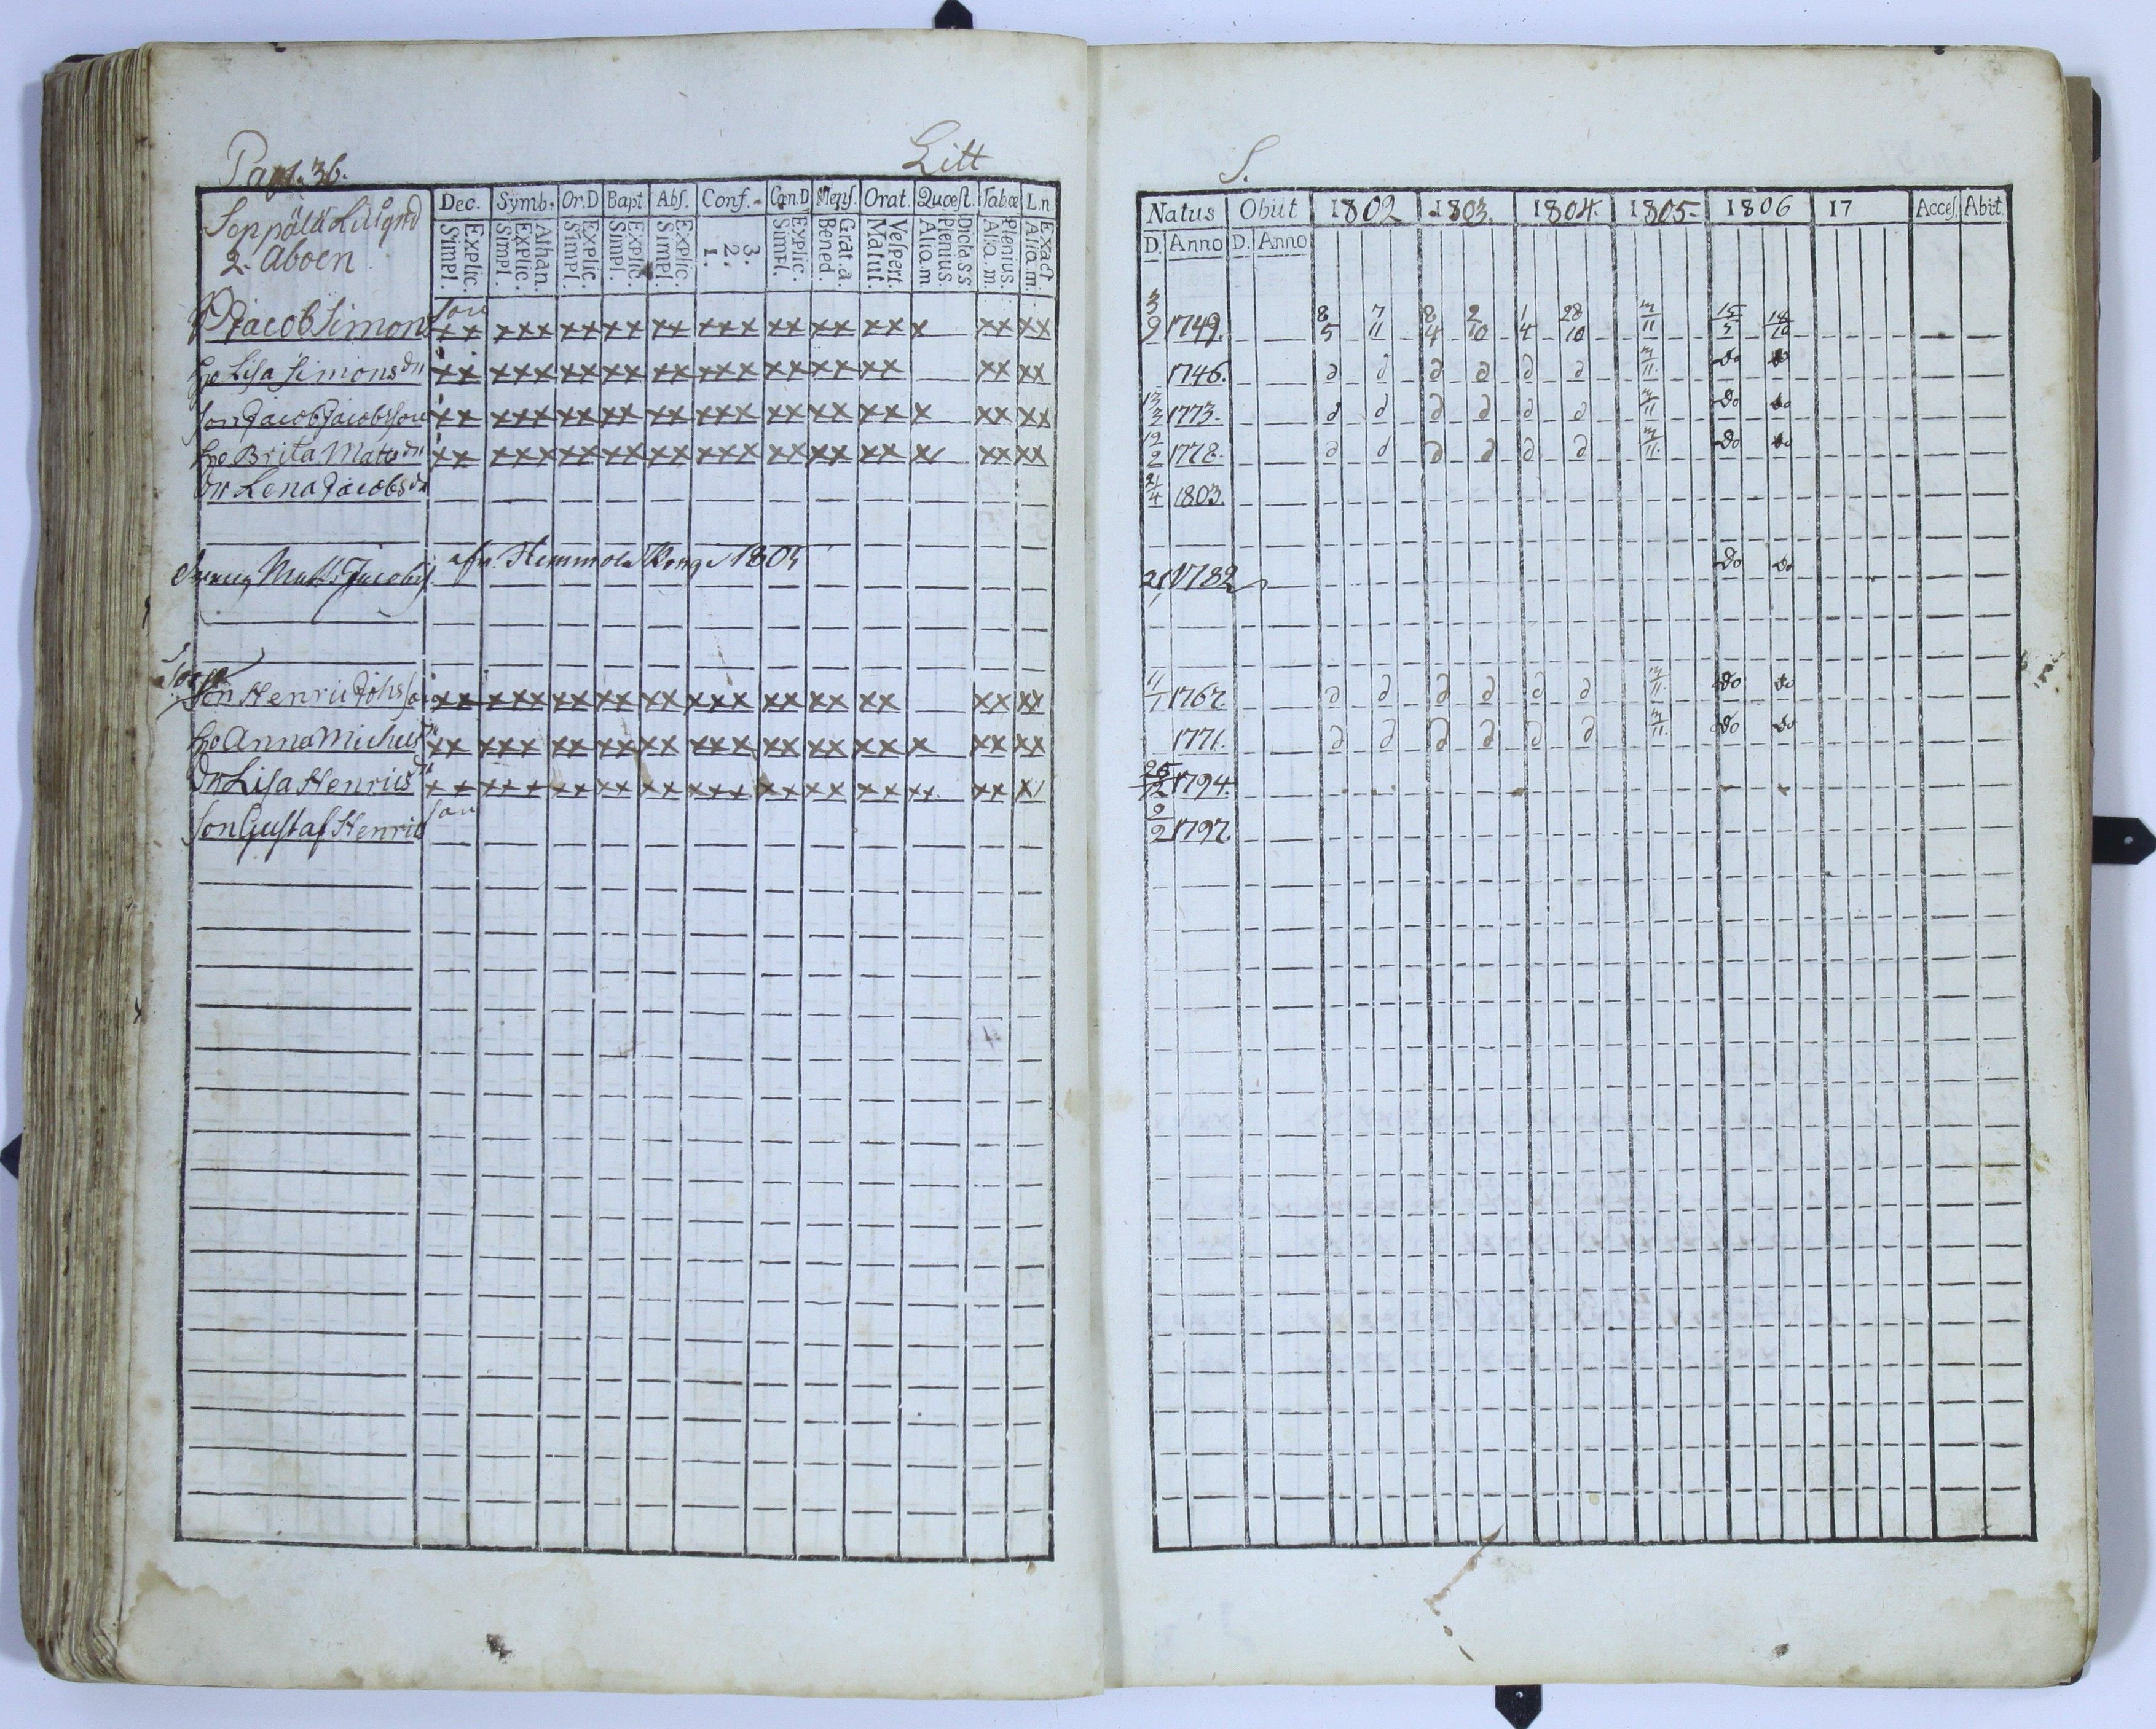 Pag. 36.
Litt
Dec. Symb. Or.D Bapt. Abs. Conf. Cœn.D Mens. Orat. Quæst. Tabœ L.n.
Seppälä
2. Aboen
Simpl. Explic. Simpl. Explic. Athan. Simpl. Explic. Simpl. Explic. Simpl. Explic. 1. 2. 3. Simpl. Explic. Bened. Grat.a. Matut. Vespert. Aliq.m. Plenius. Dict.a S S Aliq.m. Plenius. Aliq.m. Exact.
Jacob Simons son xx xxx xx xx xx xxx xx xx xx x xx xx
Lisa Simons dr xx xxx xx xx xx xxx xx xx xx xx xx
Son Jacob Jacobsson xx xxx xx xx xx xxx xx xx xx x xx xx
Brita Matts dr xx xxx xx xx xx xxx xx xx xx x xx xx
Dr Lena Jacobs dr
Matts Jacobs 1805
Son Henric Johsson xx xxx xx xx xx xxx xx xx xx xx xx
Anna Michels dr xx xxx xx xx xx xxx xx xx xx x xx xx
Dr Lisa Henrics dr xx xxx xx xx xx xxx xx xx xx xx xx xx
Son Gustaf Henrics son
S.
Natus Obiit 1802 1803. 1804. 1805. 1806 17 Acces. Abiit.
D. Anno D. Anno
3/9 1749. 8/5 7/11 8/4 2/10 1/4 28/10 3/11 15/5 14/10
1746. d d d d d d 3/11. do do
13/3 1773. d d d d d d 3/11 do do
19/2 1778. d d d d d d 3/11. do do
21/4 1803.
21/1 1782 do do
11/1 1767. d d d d d d 3/11. do do
1771. d d d d d d 3/11. do do
25/12 1794.
9/2 1797.